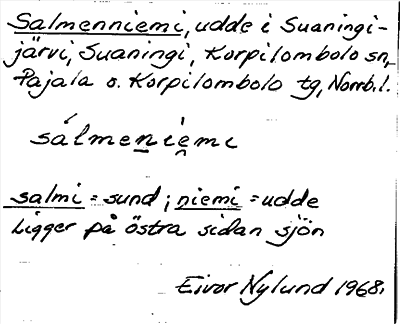 Salmenniemi, udde i Suaningi-
järvi, Suaningi, Korpilombolo sn,
Pajala o. Korpilombolo tg, Norrb.l.
sálmenịe̯mi
salmi = sund; niemi = udde
Ligger på östra sidan sjön
Eivor Nylund 1968.